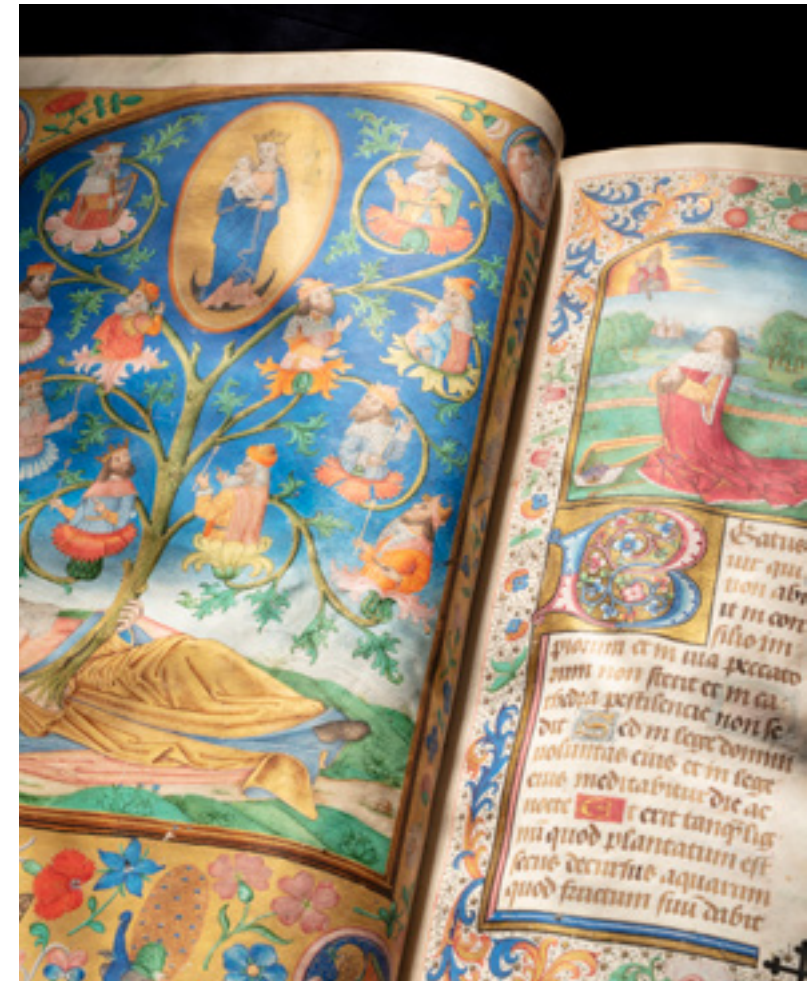 Beatus
uir qui
non abi
it in con
silio im
piorum et in uia peccato
rum non stetit et in ca
thedra pestilencie non se
dit Sed in lege domini
uoluntas eius et in lege
eius meditabitur die ac
nocte Et erit tanq̄ lig
nū quod plantatum est
secus decursus aquarum
quod fructum suū dabit